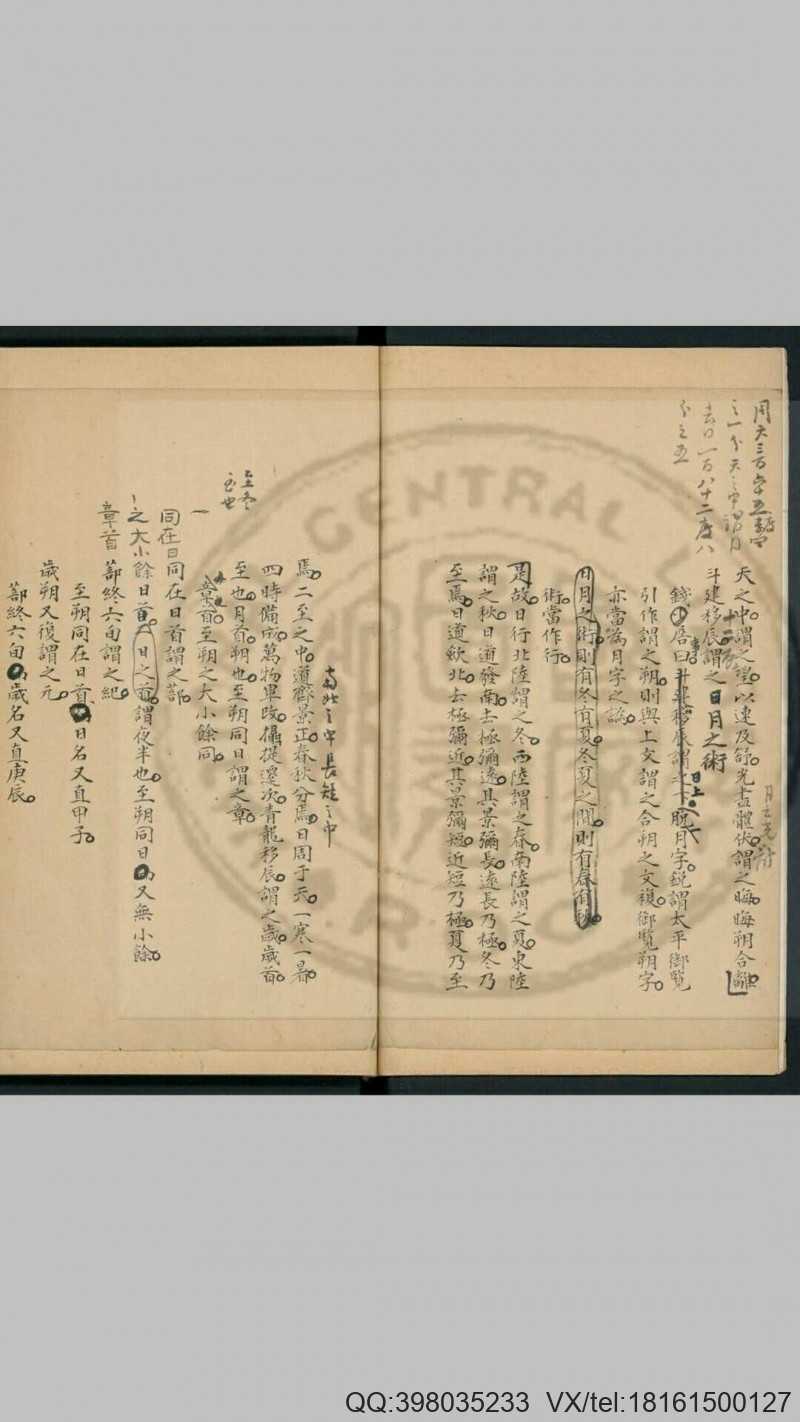 周天三百
天之中謂之望以速及舒光盡體伏謂之晦晦朔合離
斗建移辰謂之日月之術
錢居曰斗建移辰謂之脫月字銳謂太平御覽
引作謂之朔則與上文謂之合朔之文複御覽朔字
亦當為月字之譌
日月之術則有冬有夏冬夏之間則有春有秋
術當作行
是故日行北陸謂之冬西陸謂之春南陸謂之夏東陸
謂之秋日道發南去極彌遠其景彌長遠長乃極冬乃
至焉日道斂北去極彌近其景彌短近短乃極夏乃至
南北之中長短之中
焉二至之中道齊景正春秋分焉日周于天一寒一暑
四時備成萬物畢改攝提遷次青龍移辰謂之歲歲首
至也月首朔也至朔同日謂之章
章首至朔之大小餘同
同在日同在日首謂之蔀
之大小餘日首一日之首謂夜半也至朔同日又無小餘
章首蔀終六旬謂之紀
至朔同在日首日名又直甲子
歲朔又復謂之元
蔀終六旬歲名又直庚辰
CENTRAL
QQ:398035233 VX/tel:18161500127